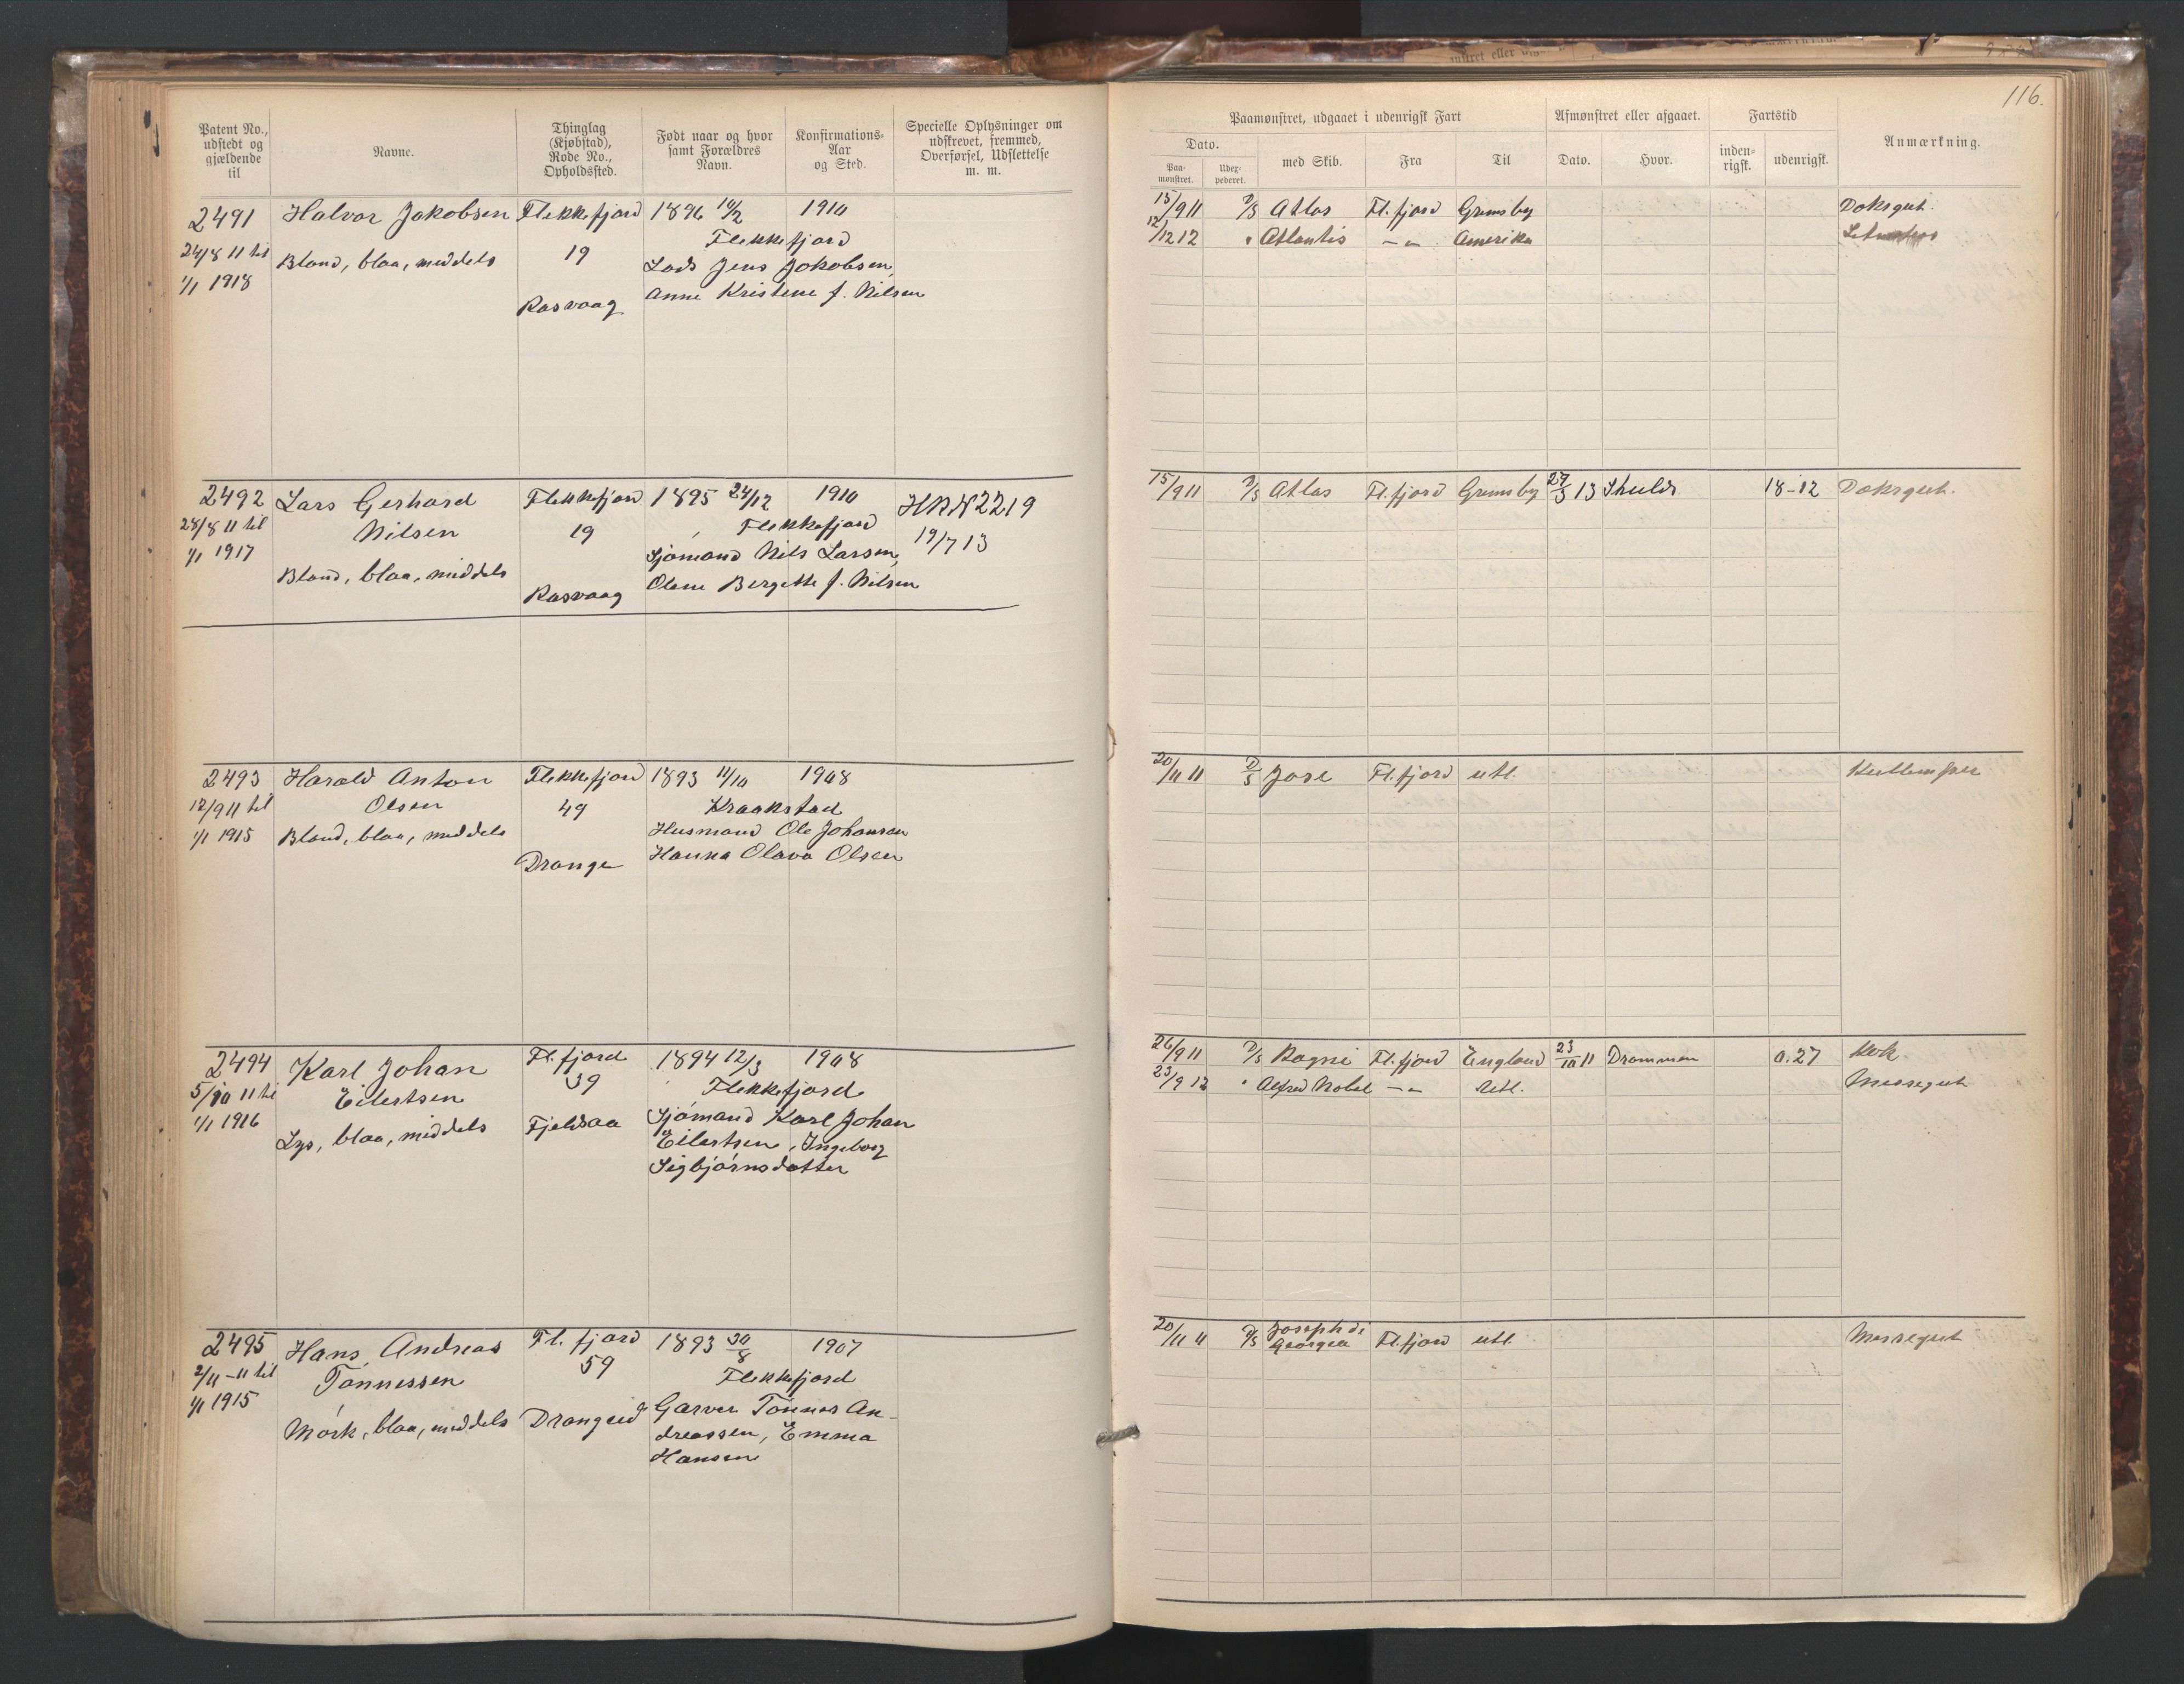 116.
Patent No., udstedt og gjældende til
Navne.
Thinglag (Kjøbstad), Rode No., Opholdssted.
Født naar og hvor samt Forældres Navn.
Konfirmations-Aar og Sted.
Specielle Oplysninger om udskrevet, fremmed, Overførsel, Udslettelse m. m.
Paamønstret, udgaaet i udenrigsk Fart
Afmønstret eller afgaaet.
Fartstid
Anmærkning.
Dato.
med Skib.
Fra
Til
Dato.
Hvor.
inden-rigsk.
udenrigsk.
Paa-mønstret.
Udex-pederet.
2491 Halvor Jakobsen Flekkefjord 1896 10/2 1910
24/8 11 til Blond, blaa, middels 19 Flekkefjord
1/1 1918 Lods Jens Jakobsen,
Rasvaag Anne Kristine f. Nilsen
15/9 11 D/S Atlas Fl.fjord Grimsby Dæksgut.
12/12 12 " Atlantis — " — Amerika
2492 Lars Gerhard Flekkefjord 1895 24/12 1910 HBN 2219
28/8 11 til Nilsen 19 Flekkefjord 19/7 13
1/1 1917 Sjømand Nils Larsen,
Blond, blaa, middels Rasvaag Olene Bergitte f. Nilsen
15/9 11 D/S Atlas Fl.fjord Grimsby 29/3 13 Shields 18-12 Dæksgut.
2493 Harald Anton Flekkefjord 1893 11/10 1908
12/9 11 til Olsen 49 Kraakstad
1/1 1915 Blond, blaa, middels Husmand Ole Johansen
Drange Hanna Olava Olsen
20/11 11 D/S Jose Fl.fjord utl. Kullemper
2494 Karl Johan Fl.fjord 1894 12/3 1908
5/10 11 til Eilertsen 39 Flekkefjord
1/1 1916 Lys, blaa, middels Fjeldsaa Sjømand Karl Johan
Eilertsen, Ingeborg
Sigbjørnsdatter
26/9 11 D/S Ragni Fl.fjord England 23/10 11 Drammen 0.27 Kok.
23/9 12 " Alfred Nobel — " — Utl. Messegut
2495 Hans Andreas Fl.fjord 1893 30/8 1907
2/11-11 til Tønnessen 59 Flekkefjord
1/1 1915 Garver Tønnes An-
Mørk, blaa, middels Drangeid dreassen, Emma
Hansen
20/11 11 D/S Joseph di Georgea Fl.fjord utl. Messegut